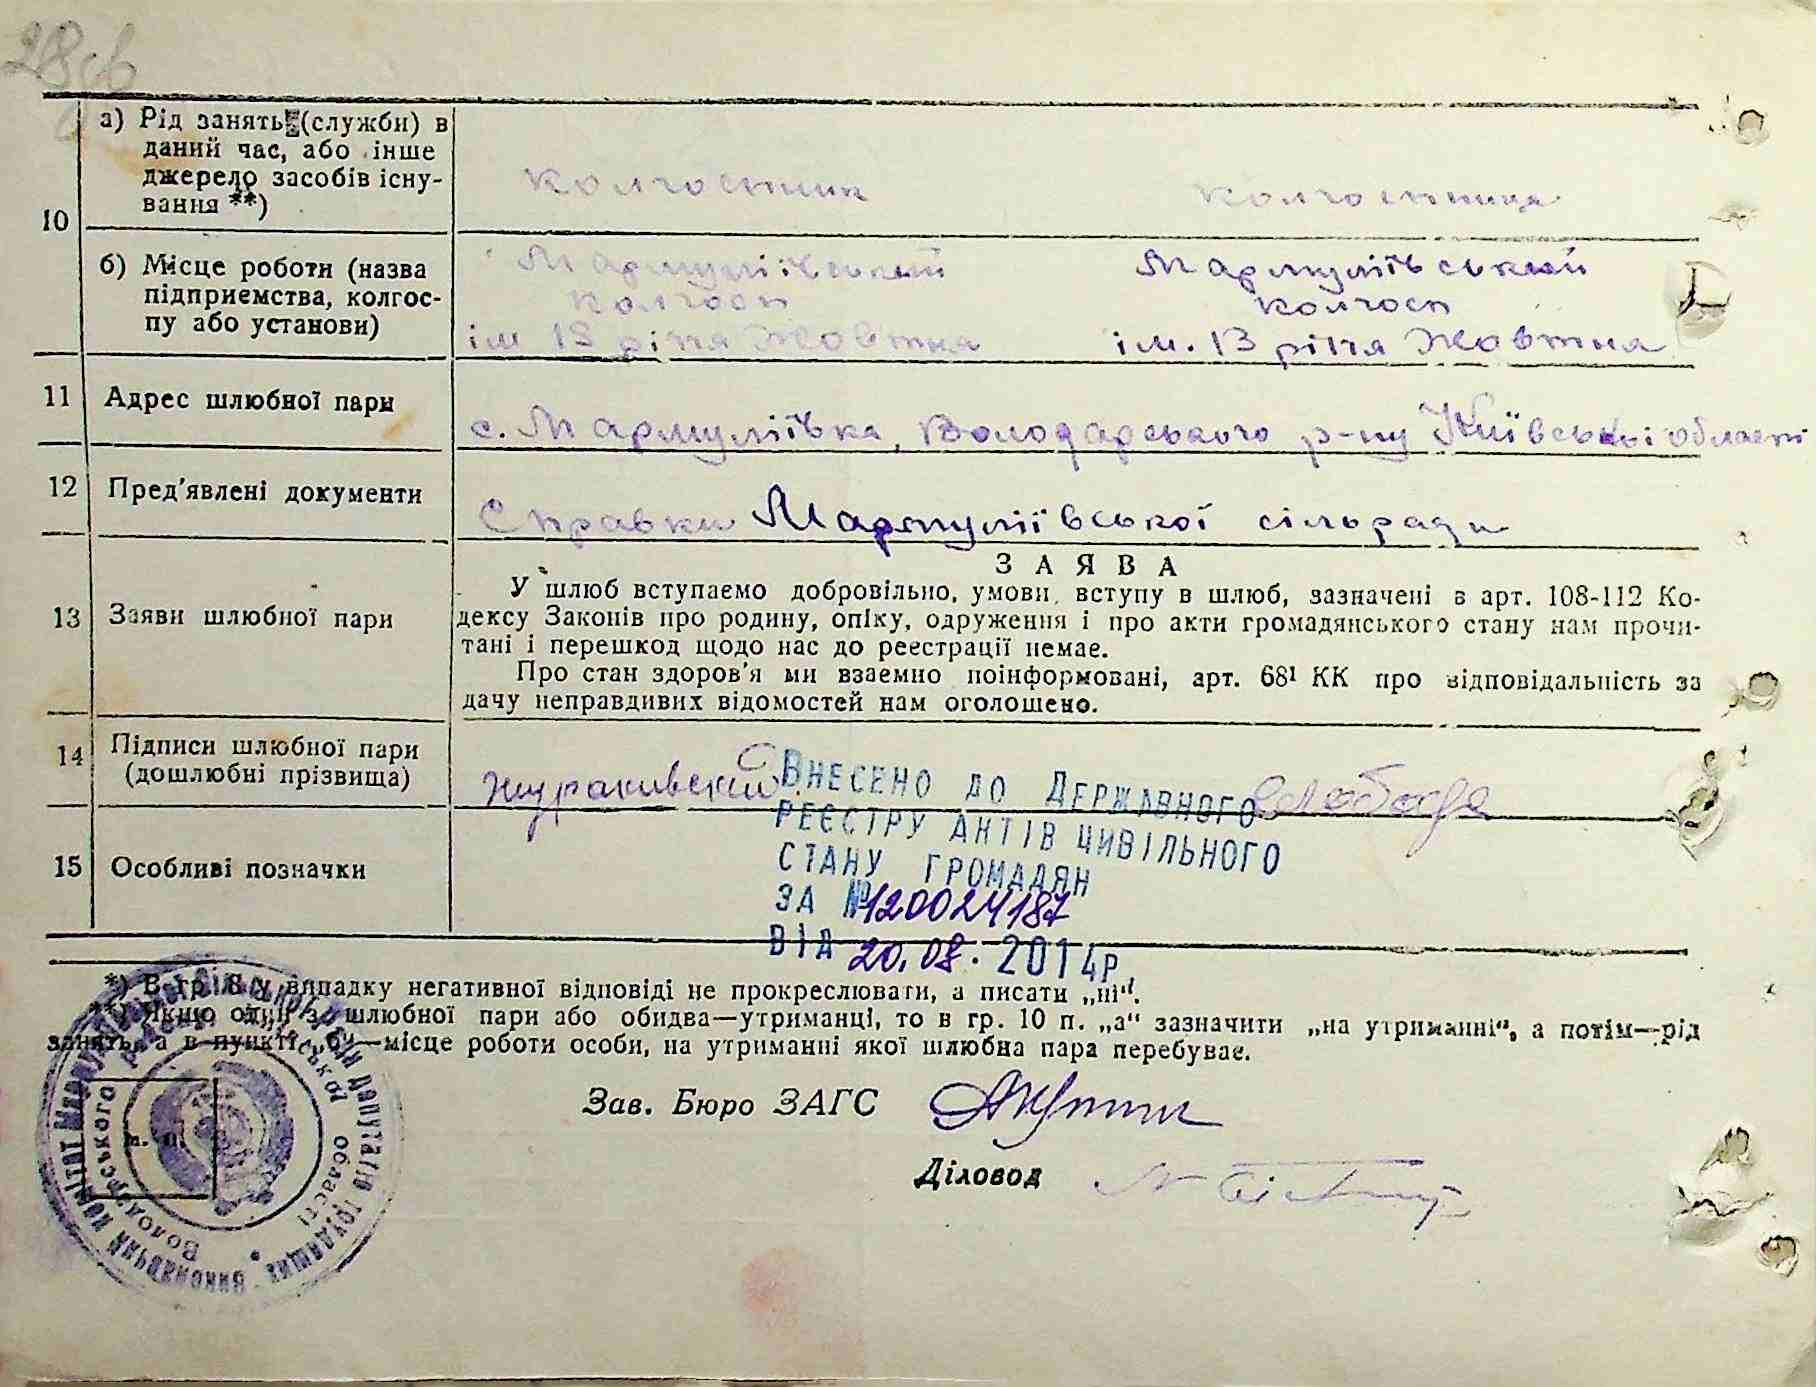 28 зв
10
а) Рід занять (служби) в
даний час, або інше
джерело засобів існу-
вання **)
колгоспник
колгоспниця
б) Місце роботи (назва
підприємства, колгос-
пу або установи)
Мармуліївський
колгосп
ім 13 річчя Жовтня
Мармуліївський
колгосп
ім. 13 річчя Жовтня
11
Адрес шлюбної пари
с. Мармуліївка, Володарського р-ну Київської області
12
Пред'явлені документи
Справки Мармуліївської сільради
13
Заяви шлюбної пари
ЗАЯВА
У шлюб вступаємо добровільно, умови вступу в шлюб, зазначені в арт. 108-112 Ко-
дексу Законів про родину, опіку, одруження і про акти громадянського стану нам прочи-
тані і перешкод щодо нас до реєстрації немає.
Про стан здоров'я ми взаємно поінформовані, арт. 68¹ КК про відповідальність за
дачу неправдивих відомостей нам оголошено.
14
Підписи шлюбної пари
(дошлюбні прізвища)
Жураковский
Слобода
15
Особливі позначки
ВНЕСЕНО ДО ДЕРЖАВНОГО
РЕЄСТРУ АКТІВ ЦИВІЛЬНОГО
СТАНУ ГРОМАДЯН
ЗА №120024187
ВІД 20.08.2014р.
*) В гр. 8 у випадку негативної відповіді не прокреслювати, а писати „ні".
**) Якщо один з шлюбної пари або обидва—утриманці, то в гр. 10 п. „а" зазначити „на утриманні", а потім—рід
занять, а в пункті „б"—місце роботи особи, на утриманні якої шлюбна пара перебуває.
Зав. Бюро ЗАГС
Діловод
м. п.
Виконавчий комітет Мармуліївської сільської Ради депутатів трудящих
Володарського району Київської області